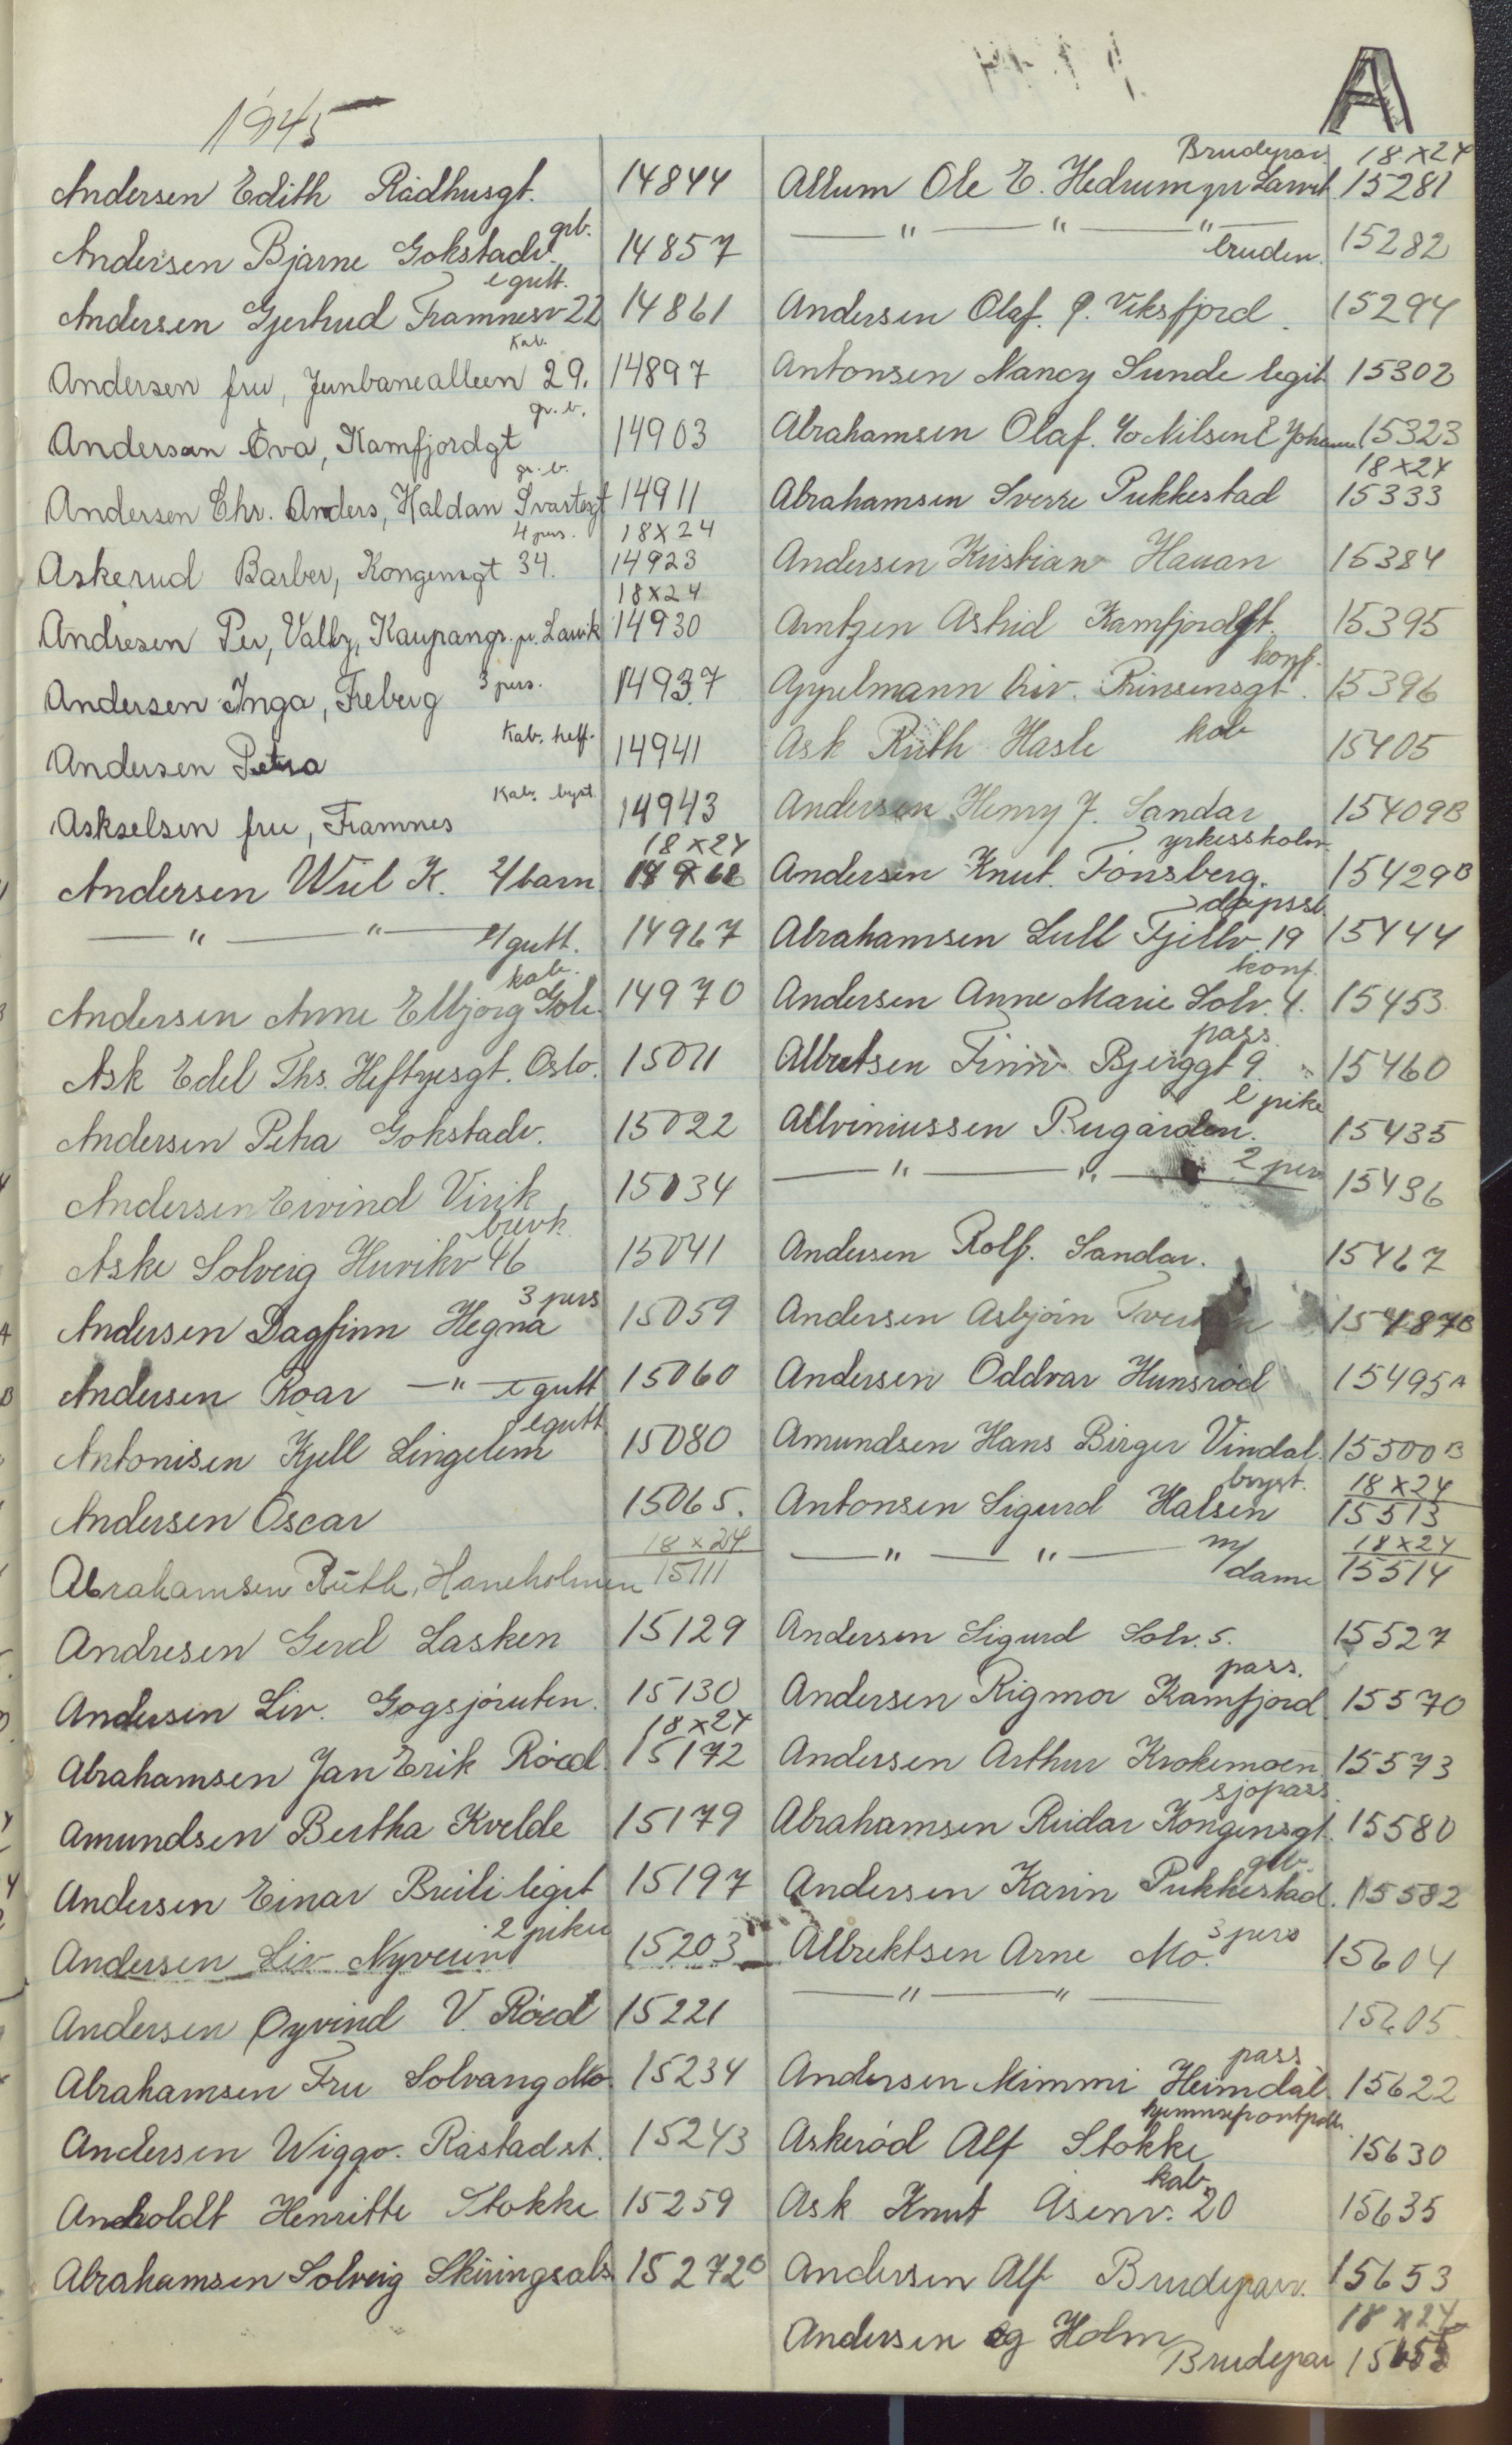 A
1945
Andersen Edith Rådhusgt. 14844
grb.
Andersen Bjarne Gokstadv. 14857
e gutt.
Andersen Gjertrud Framnesv 22 14861
Kab.
Andersen fru, Jernbanealleen 29. 14897
gr. b.
Andersen Eva, Kamfjordgt 14903
gr. b.
Andersen Chr. Anders, Haldan Svartesgt 14911
4 pers. 18x24
Askerud Barber, Kongensgt 34. 14923
18x24
Andresen Per, Valby, Kaupangr. pr. Larvik 14930
Andersen Inga, Freberg 3 pers. 14937
Kab. helf.
Andersen Petra 14941
Kab. byst.
Askselsen fru, Framnes 14943
18x24
Andersen Wiel K. 2/barn 14968
— " — " — e/gutt. 14967
kab.
Andersen Anne Elbjørg Gok. 14970
Ask Edel Ths. Heftyesgt. Oslo. 15011
Andersen Petra Gokstadv. 15022
Andersen Eivind Virik 15034
brvk.
Aske Solveig Huvikv 46 15041
3 pers
Andersen Dagfinn Hegna 15059
Andersen Roar — " — e gutt 15060
e gutt
Antonisen Kjell Lingelem 15080
Andersen Oscar 15065.
18x24
Abrahamsen Ruth, Haneholmen 15111
Andresen Gerd Lasken 15129
Andersen Liv. Gogsjøruten. 15130
18x24
Abrahamsen Jan Erik Röed. 15172
Amundsen Bertha Kvelde 15179
Andersen Einar Breili legit 15197
2 piker
Andersen Liv Nyveien 15203
Andersen Øyvind V. Röed 15221
Abrahamsen Fru Solvang Mo. 15234
Andersen Wiggo. Råstad st. 15243
Anholdt Henritte Stokke 15259
Abrahamsen Solveig Skiringsals 15272B
Brudepar 18x24
Allum Ole E. Hedrum pr Larvik. 15281
— " — " — " bruden. 15282
Andersen Olaf. P. Viksfjord. 15294
Antonsen Nancy Sunde legit 15302
Abrahamsen Olaf. c/o Nilsen E Johann. 15323
18x24
Abrahamsen Sverre Pukkestad 15333
Andersen Kristian Hauan 15384
Arntzen Astrid Kamfjordgt. 15395
konf.
Appelmann Liv. Prinsensgt. 15396
Ask Ruth Hasle kab 15405
Andersen Henry J. Sandar 15409B
yrkesskolen
Andersen Knut. Tønsberg. 15429B
dåpssel.
Abrahamsen Lull Fjellv. 19 15444
konf.
Andersen Anne Marie Solv. 4. 15453
pass.
Albretsen Finn Bjerggt 9. 15460
e pike
Allviniussen Bugården. 15435
— " — " — 2 pers 15436
Andersen Rolf. Sandar. 15467
Andersen Asbjørn 15487B
Andersen Oddvar Hunsrød 15495A
Amundsen Hans Birger Vindal. 15500B
bryst. 18x24
Antonsen Sigurd Halsen 15513
— " — " — m/dame 18x24 15514
Andersen Sigurd Solv. 5. 15527
pass.
Andersen Rigmor Kamfjord 15570
Andersen Arthur Krokemoen. 15573
sjøpass.
Abrahamsen Reidar Kongensgt. 15580
grb.
Andersen Karin Pukkestad. 15582
3 pers
Albrektsen Arne Mo. 15604
— " — " — 15605
pass
Andersen Mimmi Heimdal. 15622
hjemmefront
Askerød Alf Stokke 15630
kab.
Ask Knut Åsenv. 20 15635
Andersen Alf Brudepar. 15653
18x24
Andersen og Holm
Brudepar 15653